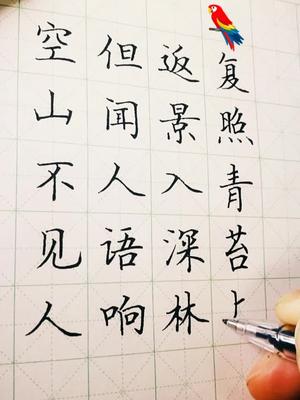 空山不见人
但闻人语响
返景入深林
复照青苔